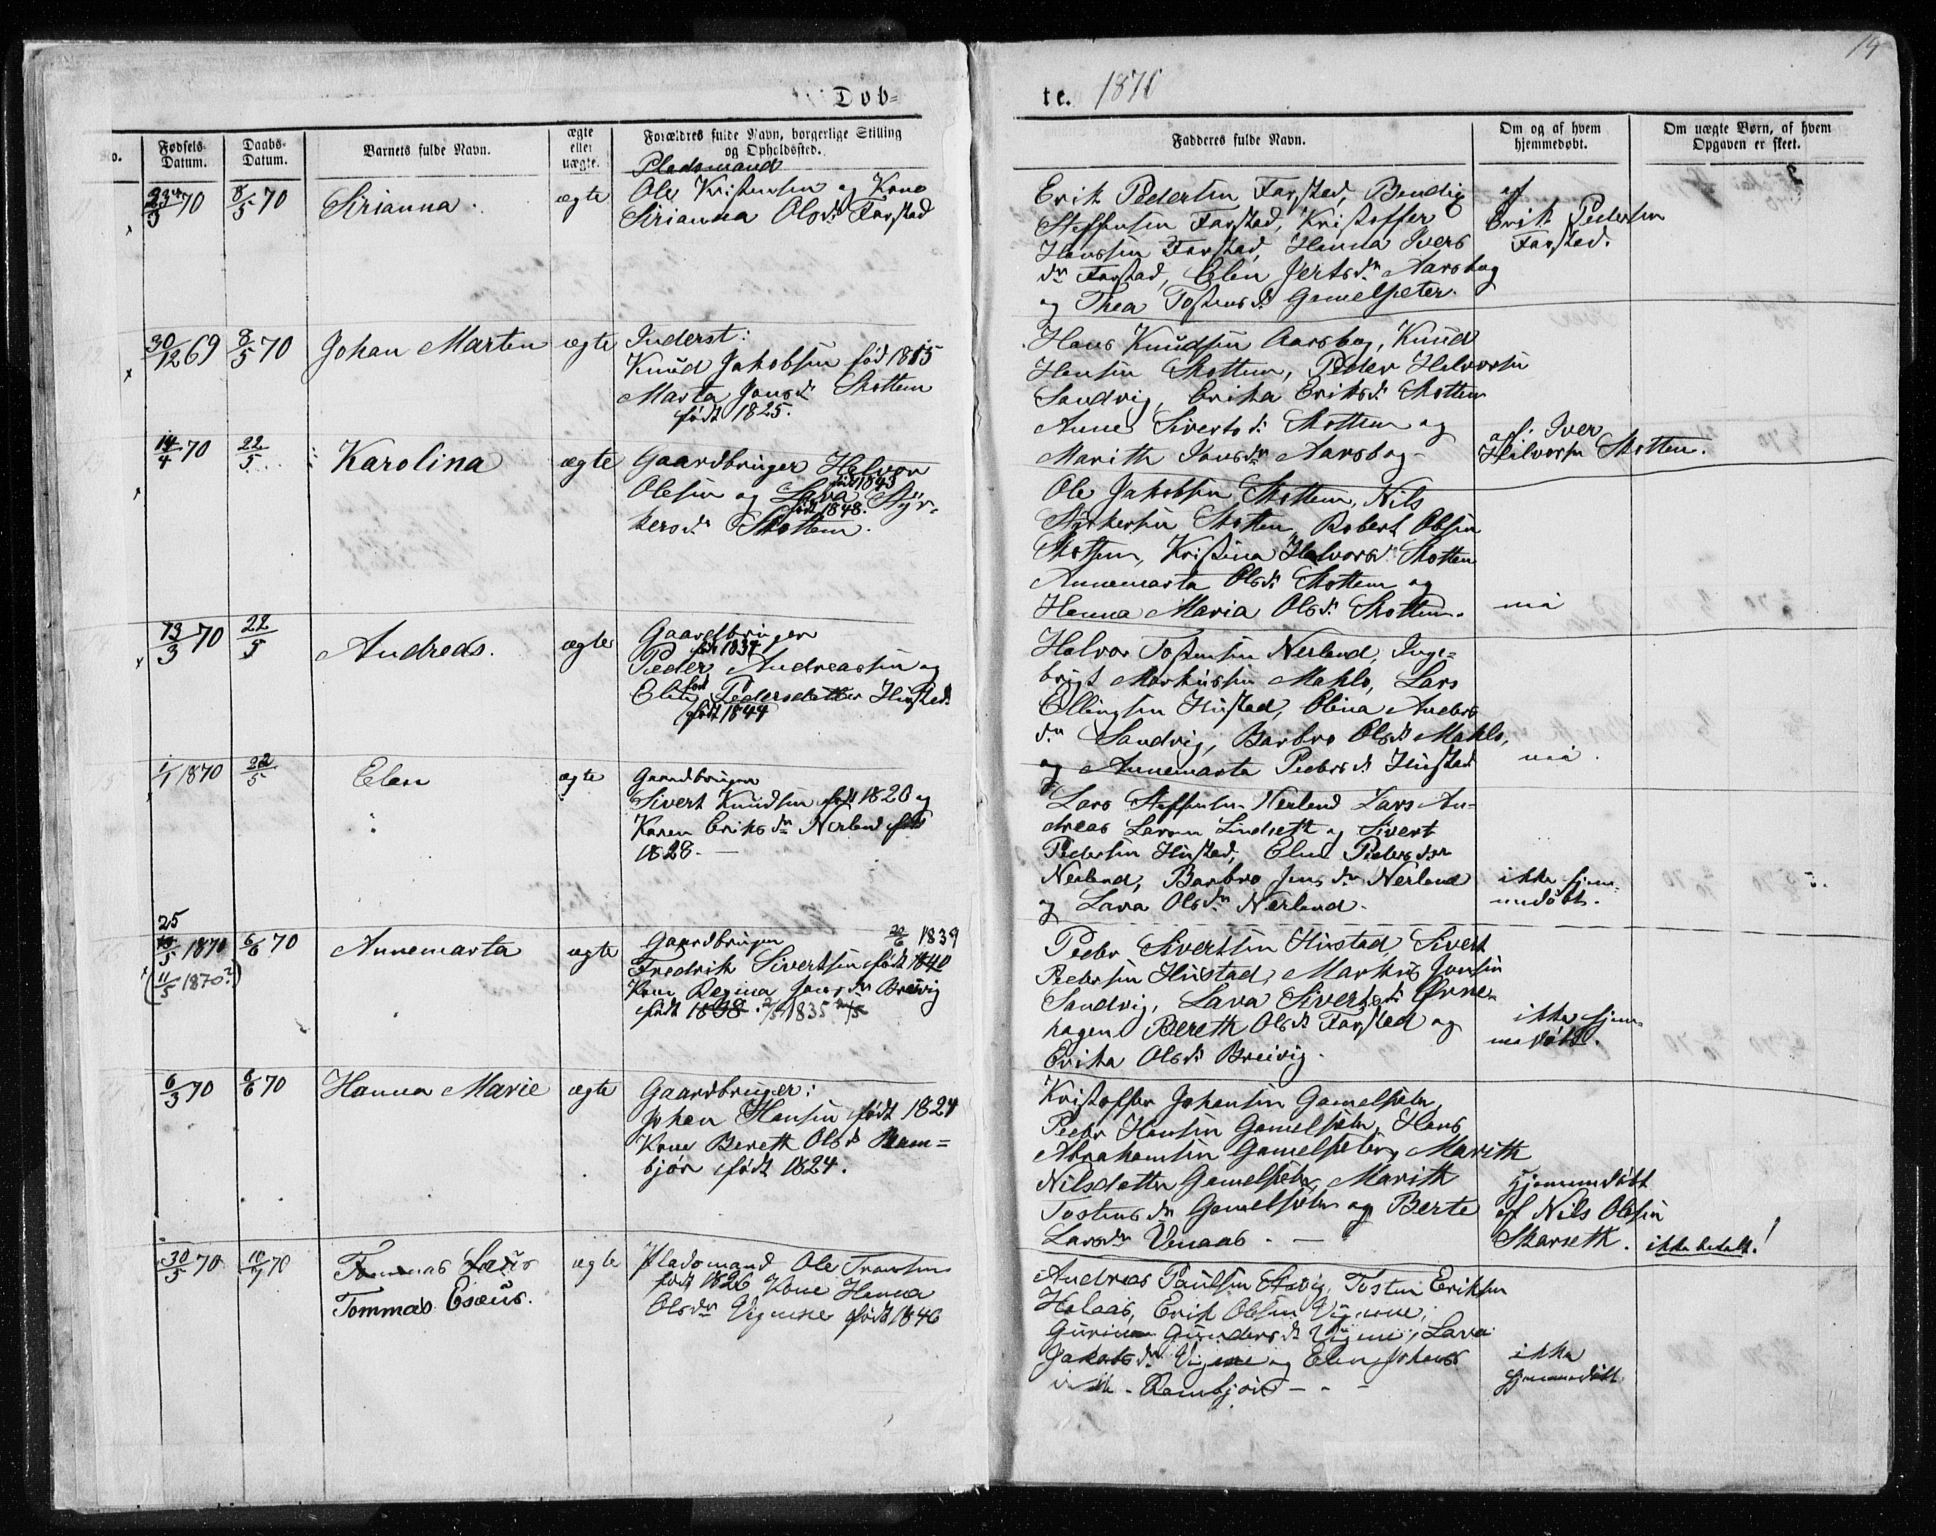 14
Døb-
te. 1870
o.
Fødsels-
Datum.
Daabs-
Datum.
Barnets fulde Navn.
ægte
eller
uægte.
Forældres fulde Navn, borgerlige Stilling
og Opholdssted.
Fadderes fulde Navn.
Om og af hvem
hjemmedøbt.
Om uægte Børn, af hvem
Opgaven er skeet.
23/3 70
8/5 70
Sirianna.
ægte
Pladsmand
Ole Kristensen og Kone
Sirianna Olsdr Farstad
Erik Pedersen Farstad, Bendig
Steffensen Farstad, Kristoffer
Hansen Farstad, Hanna Ivers
dr Farstad, Elen Jertsdr Aarsbog
og Thea Tostensdr Gamelsæter.
af
Erik Pedersen
Farstad.
30/12 69
8/5 70
Johan Martin
ægte
Inderst:
Knud Jakobsen fød 1815
Marta Jonsdr Skottem
født 1825.
Hans Knudsen Aarsbog, Knud
Hansen Skottem, Peder Halvorsen
Sandvig, Erika Eriksdr Skottem
Anne Sivertsdr Skottem og
Marith Jonsdr Aarsbog
af Iver
Halvorsen Skottem.
14/4 70
22/5
Karolina
ægte
Gaardbruger Halvor
født 1843
Olesen og Lava Styr-
født 1848.
kersdr Skottem.
Ole Jakobsen Skottem, Nils
Styrkersen Skottem, Robert Olsen
Skottem, Kristina Halvorsdr Skottem
Annemarta Olsdr Skottem og
Hanna Maria Olsdr Skottem.
nei
13/3 70
22/5
Andreas.
ægte
Gaardbruger
født 1834
Peder Andreassen og
Eli Pedersdatter Hustad
født 1844
Halvor Tostensen Nerland, Inge-
brigt Markussen Mahlo, Lars
Ellingsen Hustad, Olina Anders
dr Sandvig, Barbro Olsdr Mahlo,
og Annemarta Pedersdr Hustad
nei.
1/1 1870
22/5
Elen
ægte
Gaardbruger
Sivert Knudsen født 1820 og
Karen Eriksdr Nerland født
1828.
Lars Steffensen Nerland Lars An-
dreas Larsen Lindseth og Sivert
Pedersen Hustad, Elen Pedersdr
Nerland, Barbro Jensdr Nerland
og Lava Olsdr Nerland.
ikke hjem-
medøbt.
25
/5 1870
(11/5 1870?)
6/6 70
Annemarta
ægte
Gaardbruger 22/6 1839
Fredrik Sivertsen født 1840
Kone Regina Jonsdr Breivig
født 1838. 1835
Peder Sivertsen Hustad, Sivert
Pedersen Hustad, Markus Jonsen
Sandvig, Lava Sivertsdr Ørne-
hagen Bereth Olsdr Farstad og
Erika Olsdr Breivig.
ikke hjem-
medøbt.
6/3 70
6/6 70
Hanna Marie
ægte
Gaardbruger:
Johan Hansen født 1824
Kone Bereth Olsdr Ram-
bjør født 1824.
Kristoffer Johansen Gamelsæter,
Peder Hansen Gamelsæter, Hans
Abrahamsen Gamelsæter, Marith
Nilsdatter Gamelsæter, Marith
Tostensdr Gamelsæter og Berte
Larsdr Venaas.
Hjemmedøbt
af Nils Olsen
Skarseth.
ikke betalt!
30/5 70
10/7 70
Tommas
Tommas Esæus.
ægte
Pladsmand Ole Transsen
født 1826 Kone Hanna
Olsdr Vigene født 1846
Andreas Paulsen Strøig, Tosten Eriksen
Halaas, Erik Olsen Vigene,
Gurine Gundersdr Vigene, Lava
Jakobsdr Vigene og Elen Johans
dr Rambjør
ikke
hjemmedøbt